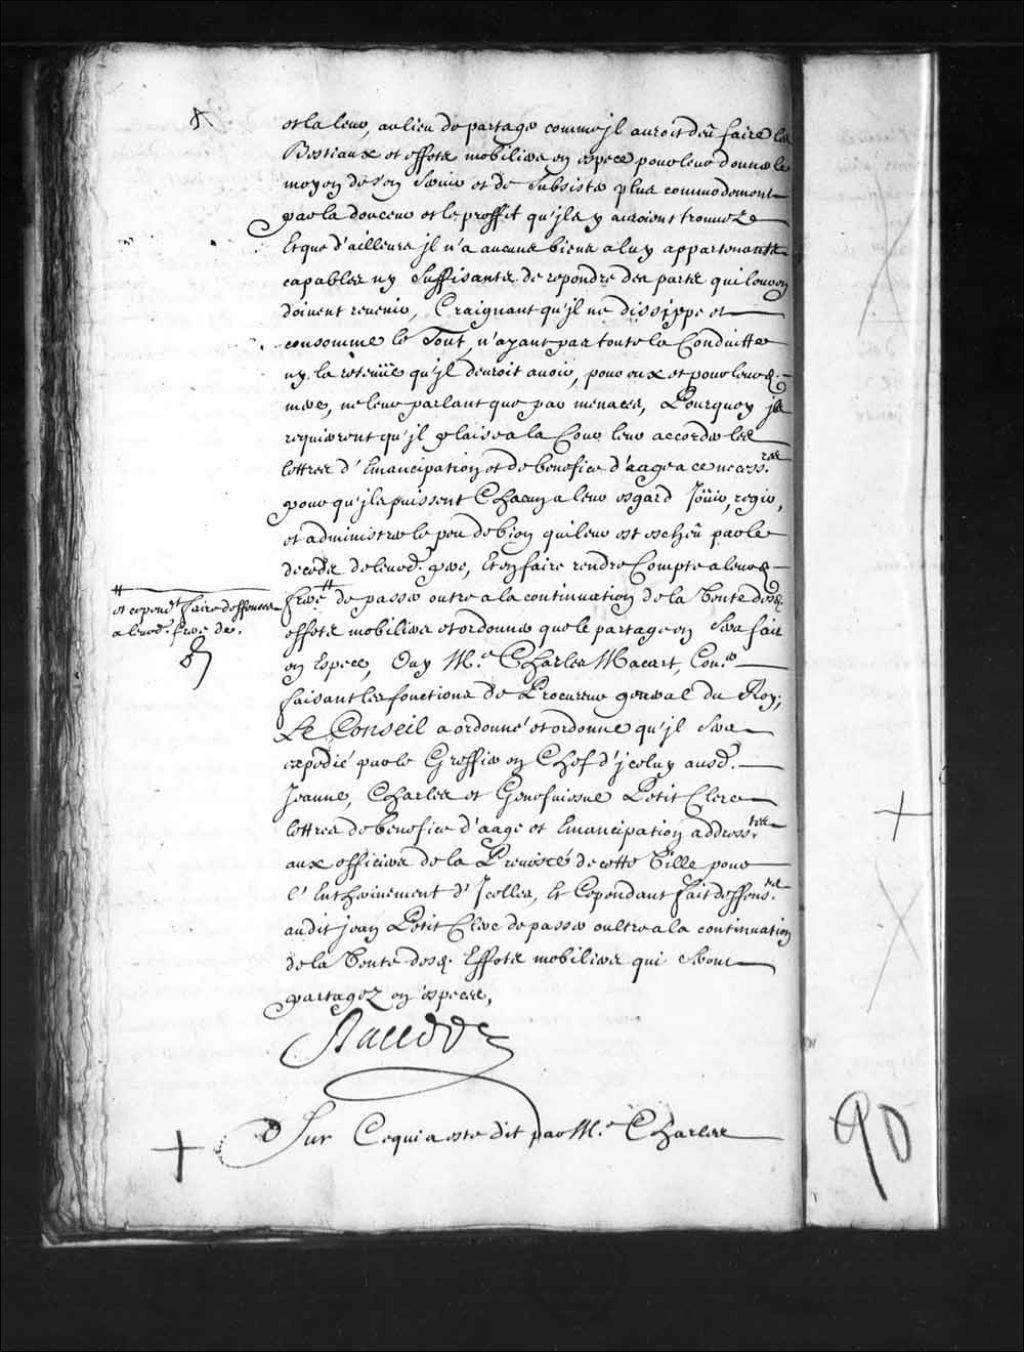 et la leur, au lieu de partager comme jl auroit deû faire les
Bestiaux et effets mobiliers en espece pour leur donner le
moyen de s'en servir et de subsister plus commodement
par la douceur et le proffit qu'jls y auroient trouvéz
Et que d'ailleurs jl n'a aucuns biens a luy appartenants
capables ny suffisants de repondre des parts qui leur en
doivent revenir, Craignant qu'jl ne dissippe et
consomme le Tout, n'ayant pas toute la Conduitte
ny la retenüe qu'jl devroit avoir, pour eux et pour leurd.
mere, ne leur parlant que par menaces, Pourquoy jls
requierent qu'jl plaise a la Cour leur accorder les
lettres d'Emancipation et de benefice d'aage a ce necess.res
pour qu'jls puissent Chacun a leur esgard Joüir, regir,
et administrer le peu de bien qui leur est escheû par le
deceds de leurd. pere, Et en faire rendre Compte a leurd.
# et cepend.t faire deffenses
a leurd. frere de.
frere # de passer outre a la continuation de la Vente desd.
effets mobiliers et ordonner que le partage en sera fait
en Espece, Ouy M.e Charles Macart, Con.er
faisant les fonctions de Procureur general du Roy,
Le Conseil a ordonné et ordonne qu'jl sera
expedié par le Greffier en Chef d'jceluy ausd.
Jeanne, Charles et Genefviesve Petit Clerc
lettres de benefice d'aage et Emancipation address.tes
aux officiers de la Prevosté de cette Ville pour
l'Enthérinement d'Jcelles, Et Cependant fait deffens.es
audit jean Petit Clerc de passer oultre a la continuation
de la Vente desd. Effets mobiliers qui seront
partagez en especes,
+ Sur Ce qui a esté dit par M.e Charles
+
90